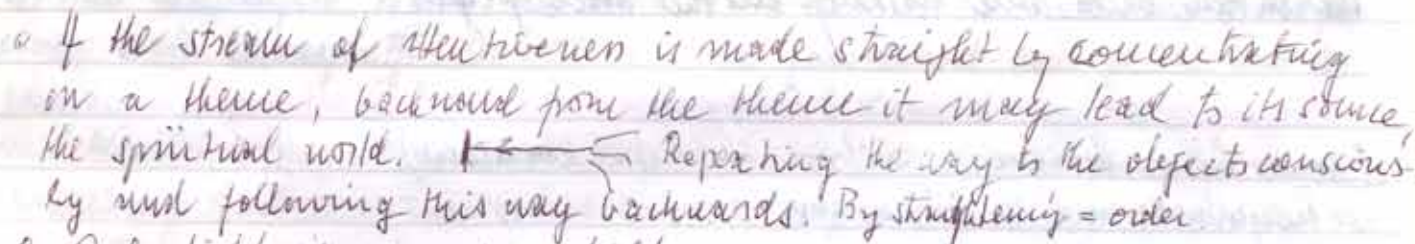 If the stream of attentiveness is made straight by concentrating
on a theme, backward from the theme it may lead to its source,
the spiritual world. Repeating the way to the objects conscious-
ly and following this way backwards. By straightening = order.